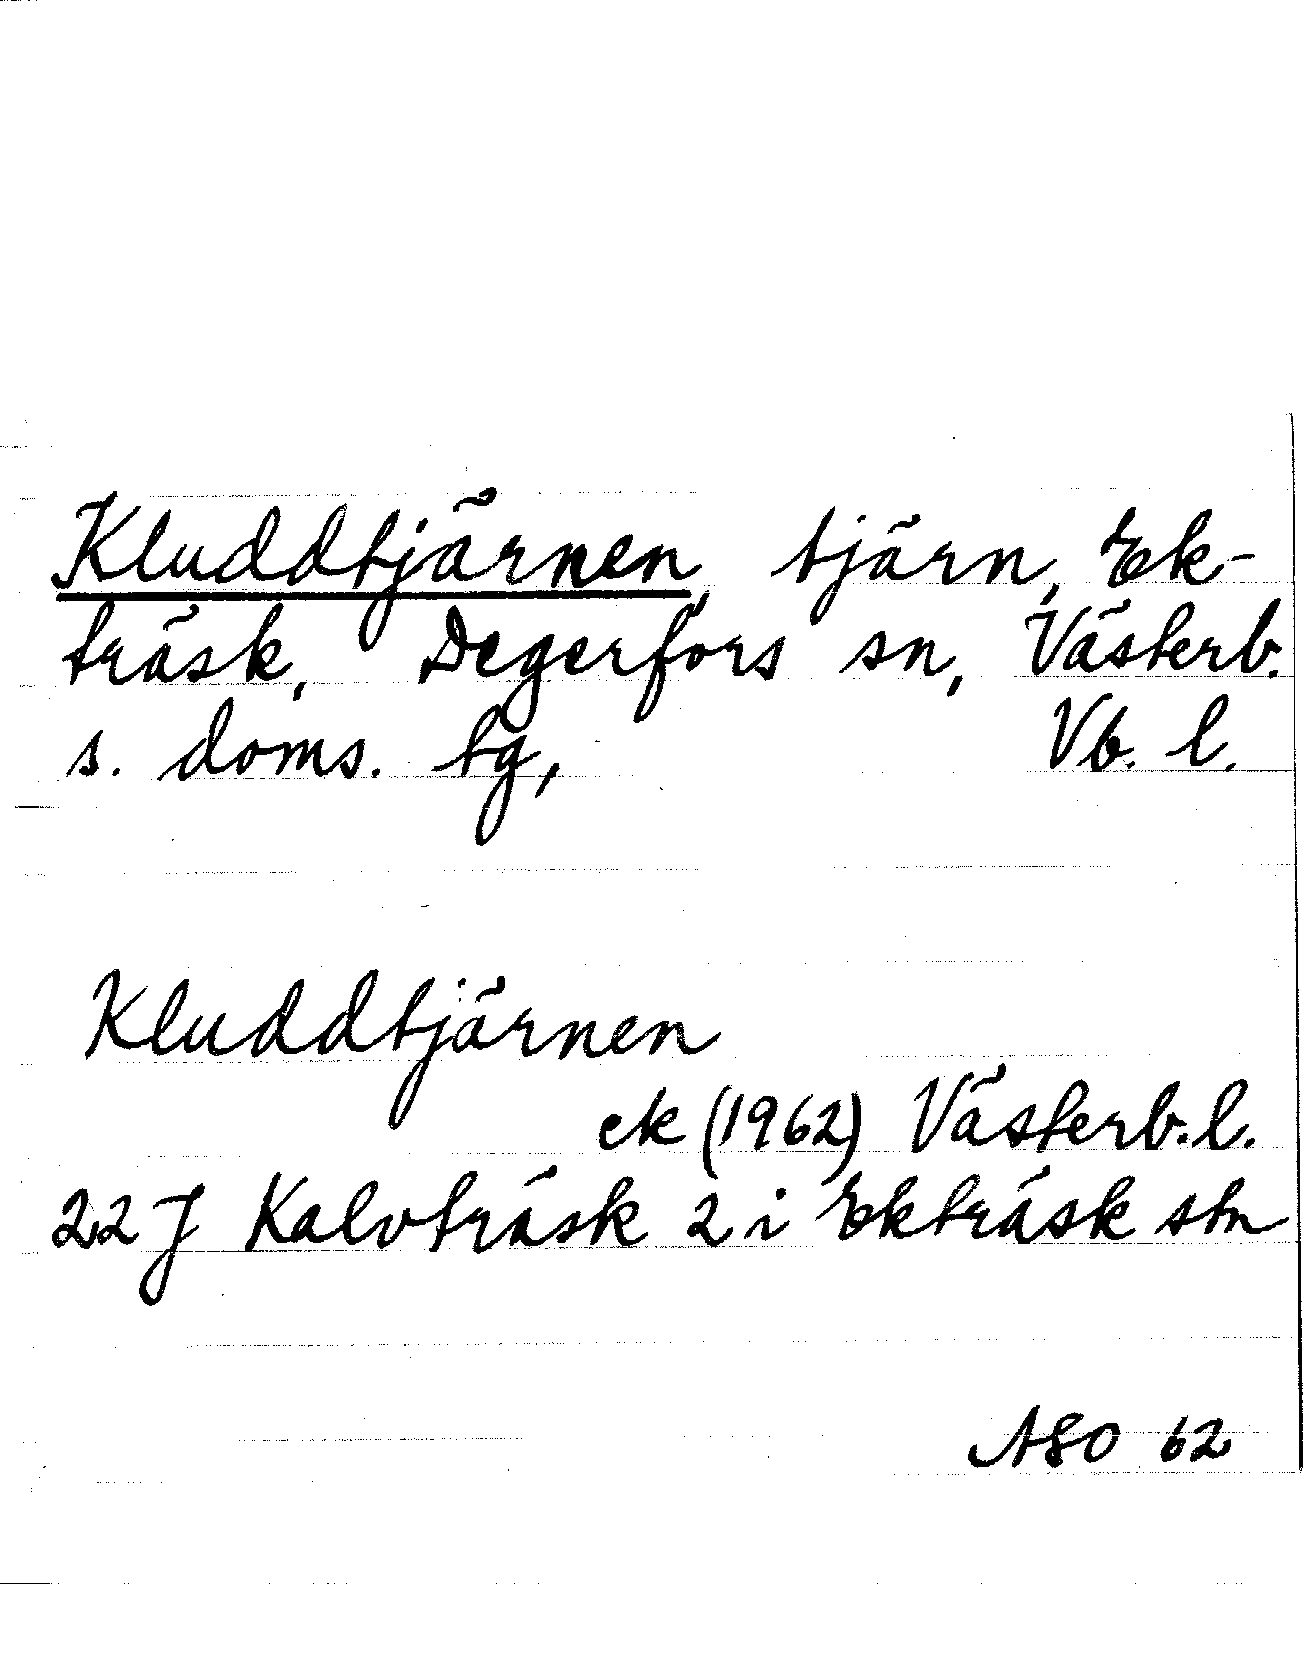 Kluddtjärnen, tjärn, Ek-
träsk, Degerfors sn, Västerb.
s. doms. tg, Vb. l.
Kluddtjärnen
ek (1962) Västerb. l.
22 J Kalvträsk 2 i Ekträsk stn
ASO 62